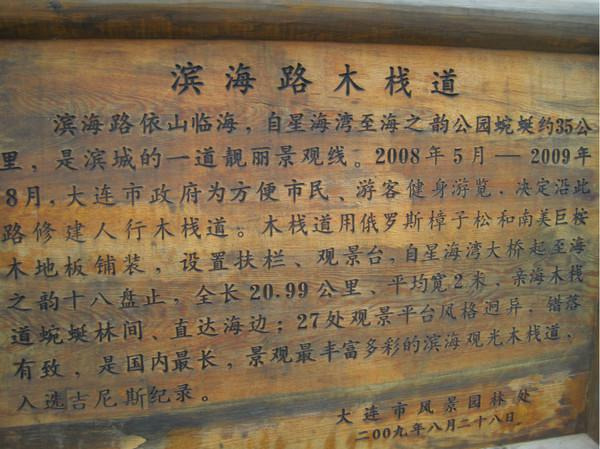 滨海路木栈道
滨海路依山临海，自星海湾至海之韵公园蜿蜒约35公
里，是滨城的一道靓丽景观线。2008年5月—2009年
8月，大连市政府为方便市民、游客健身游览，决定沿此
路修建人行木栈道。木栈道用俄罗斯樟子松和南美巨桉
木地板铺装，设置扶栏、观景台，自星海湾大桥起至海
之韵十八盘止，全长20.99公里、平均宽2米，亲海木栈
道蜿蜒林间、直达海边；27处观景平台风格迥异，错落
有致，是国内最长，景观最丰富多彩的滨海观光木栈道，
入选吉尼斯纪录。
大连市风景园林处
二00九年八月二十八日